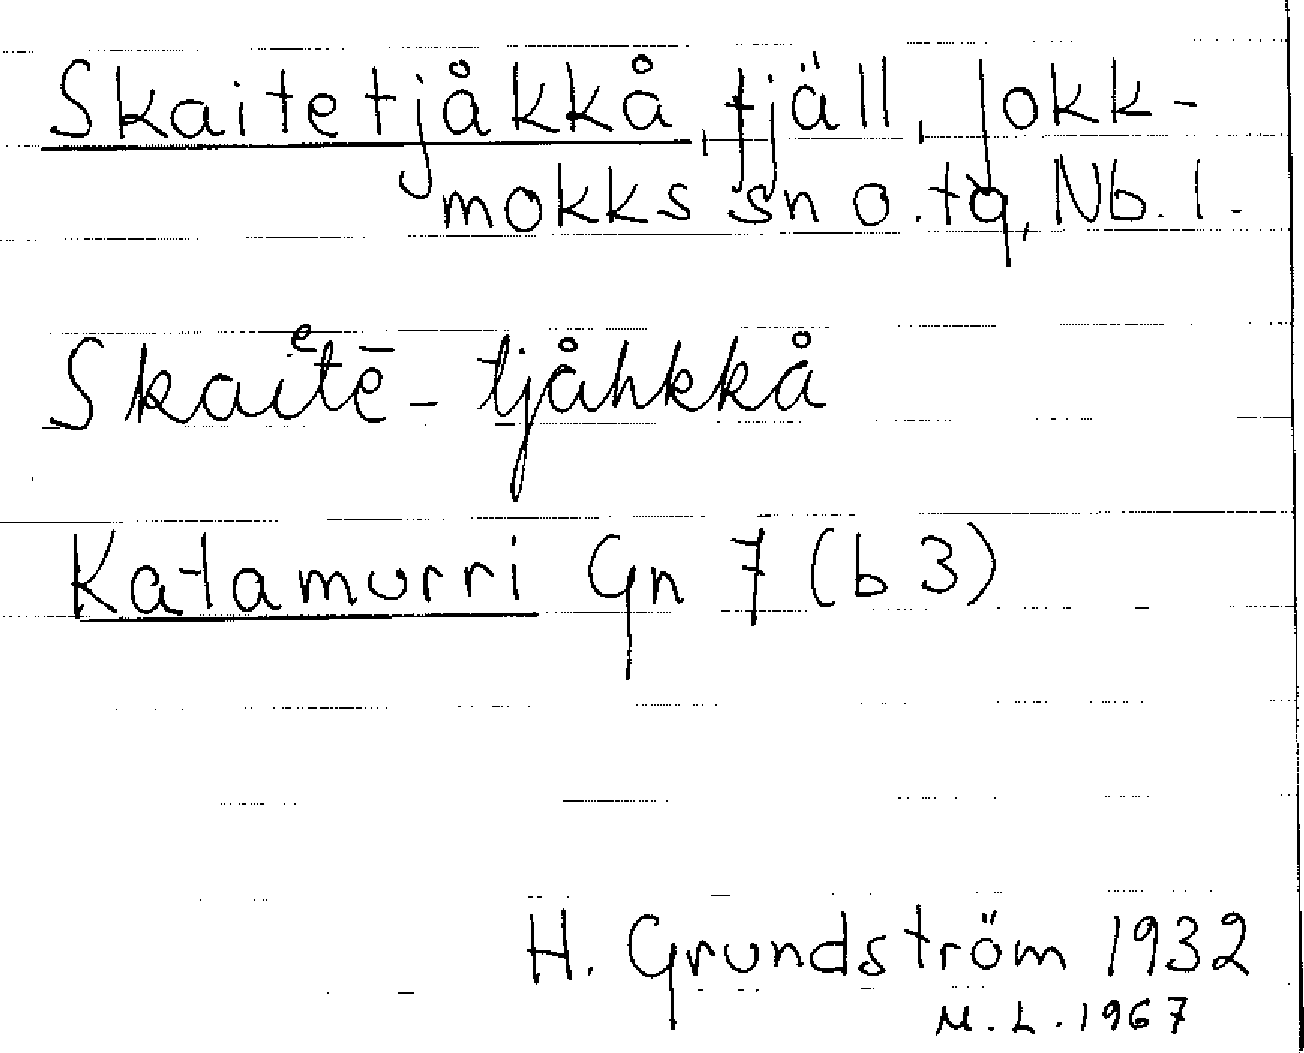 Skaitetjåkkå, fjäll, Jokk-
mokks sn o. tg, Nb. l.
Skaiᵉtē-tjåhkkå
Katamurri Gn 7 (b 3)
H. Grundström 1932
M. L. 1967